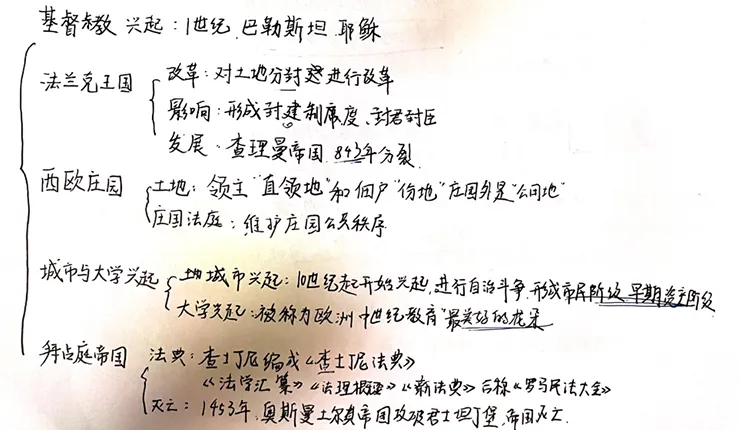 基督教 兴起：1世纪 巴勒斯坦 耶稣
法兰克王国
改革：对土地分封 进行改革
影响：形成封建制度、封君封臣
发展：查理曼帝国 843年分裂
西欧庄园
土地：领主"直领地"和佃户"份地"庄园外是"公用地"
庄园法庭：维护庄园公共秩序
城市与大学兴起
城市兴起：10世纪起开始兴起，进行自治斗争，形成市民阶级 早期资产阶级
大学兴起：被称为欧洲中世纪教育"最美好的花朵
拜占庭帝国
法典：查士丁尼编成《查士丁尼法典》
《法学汇纂》《法理概要》《新法典》合称《罗马民法大全》
灭亡：1453年，奥斯曼土耳其帝国攻破君士坦丁堡，帝国灭亡.